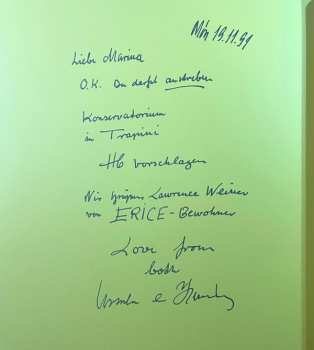 Mön 19.11.91
Liebe Marina
O.K. Du darfst anstreben
Konservatorium
in Trapani
HC vorschlagen
Wir grüssen Lawrence Weiner
von ERICE-Bewohner
Love from
both
Ursula e